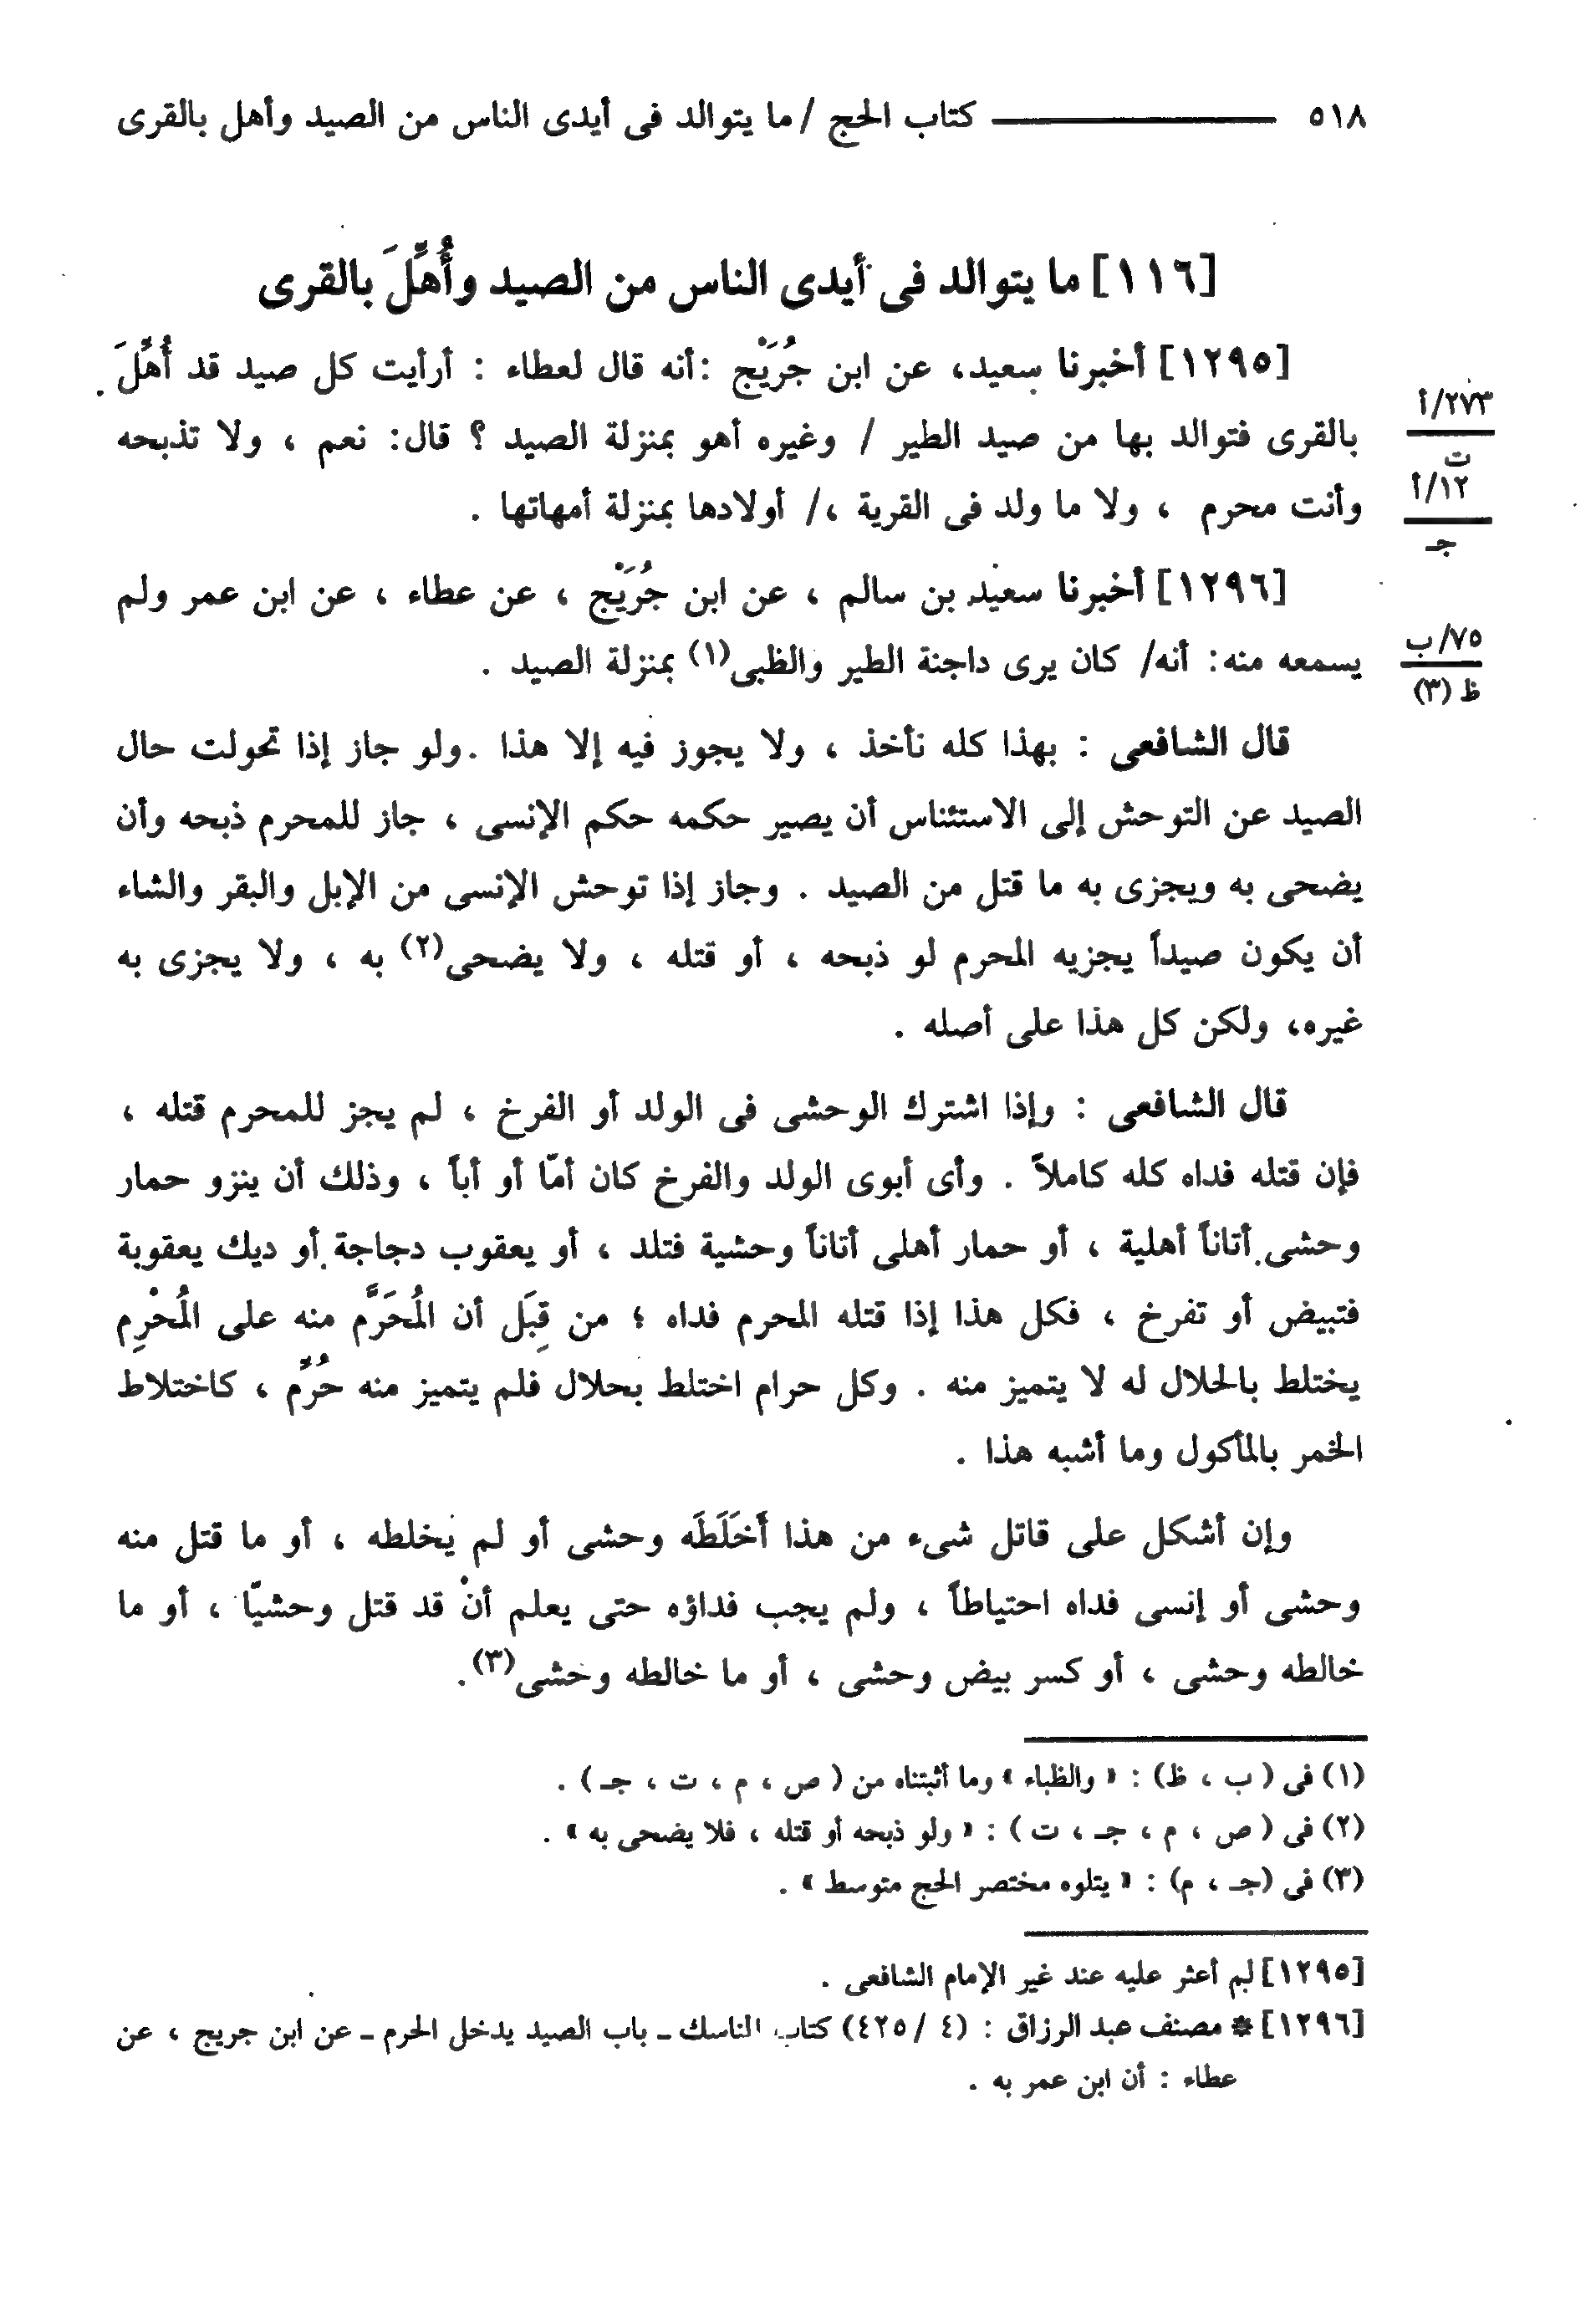 ٥١٨ ــــــــــ كتاب الحج / ما يتوالد فى أيدى الناس من الصيد وأهل بالقرى
[١١٦] ما يتوالد فى أيدى الناس من الصيد وأُهِّلَ بالقرى
[١٢٩٥] أخبرنا سعيد، عن ابن جُرَيْج :أنه قال لعطاء : أرأيت كل صيد قد أُهِّلَ
بالقرى فتوالد بها من صيد الطير / وغيره أهو بمنزلة الصيد ؟ قال: نعم ، ولا تذبحه
وأنت محرم ، ولا ما ولد فى القرية ،/ أولادها بمنزلة أمهاتها .
٢٧٣/أ
ت
١٢/أ
جـ
[١٢٩٦] أخبرنا سعيد بن سالم ، عن ابن جُرَيْج ، عن عطاء ، عن ابن عمر ولم
يسمعه منه: أنه/ كان يرى داجنة الطير والظبى(١) بمنزلة الصيد .
٧٥/ب
ظ (٣)
قال الشافعى : بهذا كله نأخذ ، ولا يجوز فيه إلا هذا .ولو جاز إذا تحولت حال
الصيد عن التوحش إلى الاستئناس أن يصير حكمه حكم الإنسى ، جاز للمحرم ذبحه وأن
يضحى به ويجزى به ما قتل من الصيد . وجاز إذا توحش الإنسى من الإبل والبقر والشاء
أن يكون صيداً يجزيه المحرم لو ذبحه ، أو قتله ، ولا يضحى(٢) به ، ولا يجزى به
غيره، ولكن كل هذا على أصله .
قال الشافعى : وإذا اشترك الوحشى فى الولد أو الفرخ ، لم يجز للمحرم قتله ،
فإن قتله فداه كله كاملاً . وأى أبوى الولد والفرخ كان أمّا أو أباً ، وذلك أن ينزو حمار
وحشى أتاناً أهلية ، أو حمار أهلى أتاناً وحشية فتلد ، أو يعقوب دجاجة أو ديك يعقوبة
فتبيض أو تفرخ ، فكل هذا إذا قتله المحرم فداه ؛ من قِبَل أن المُحَرَّم منه على المُحْرِم
يختلط بالحلال له لا يتميز منه . وكل حرام اختلط بحلال فلم يتميز منه حُرِّم ، كاختلاط
الخمر بالمأكول وما أشبه هذا .
وإن أشكل على قاتل شىء من هذا أَخَلَطَه وحشى أو لم يخلطه ، أو ما قتل منه
وحشى أو إنسى فداه احتياطاً ، ولم يجب فداؤه حتى يعلم أنْ قد قتل وحشيّا ، أو ما
خالطه وحشى ، أو كسر بيض وحشى ، أو ما خالطه وحشى(٣).
(١) فى ( ب ، ظ) : « والظباء » وما أثبتناه من ( ص ، م ، ت ، جـ ) .
(٢) فى ( ص ، م ، جـ ، ت ) : « ولو ذبحه أو قتله ، فلا يضحى به » .
(٣) فى (جـ ، م) : « يتلوه مختصر الحج متوسط » .
[١٢٩٥] لم أعثر عليه عند غير الإمام الشافعى .
[١٢٩٦] * مصنف عبد الرزاق : (٤ / ٤٢٥) كتاب المناسك ـ باب الصيد يدخل الحرم ـ عن ابن جريج ، عن
عطاء : أن ابن عمر به .